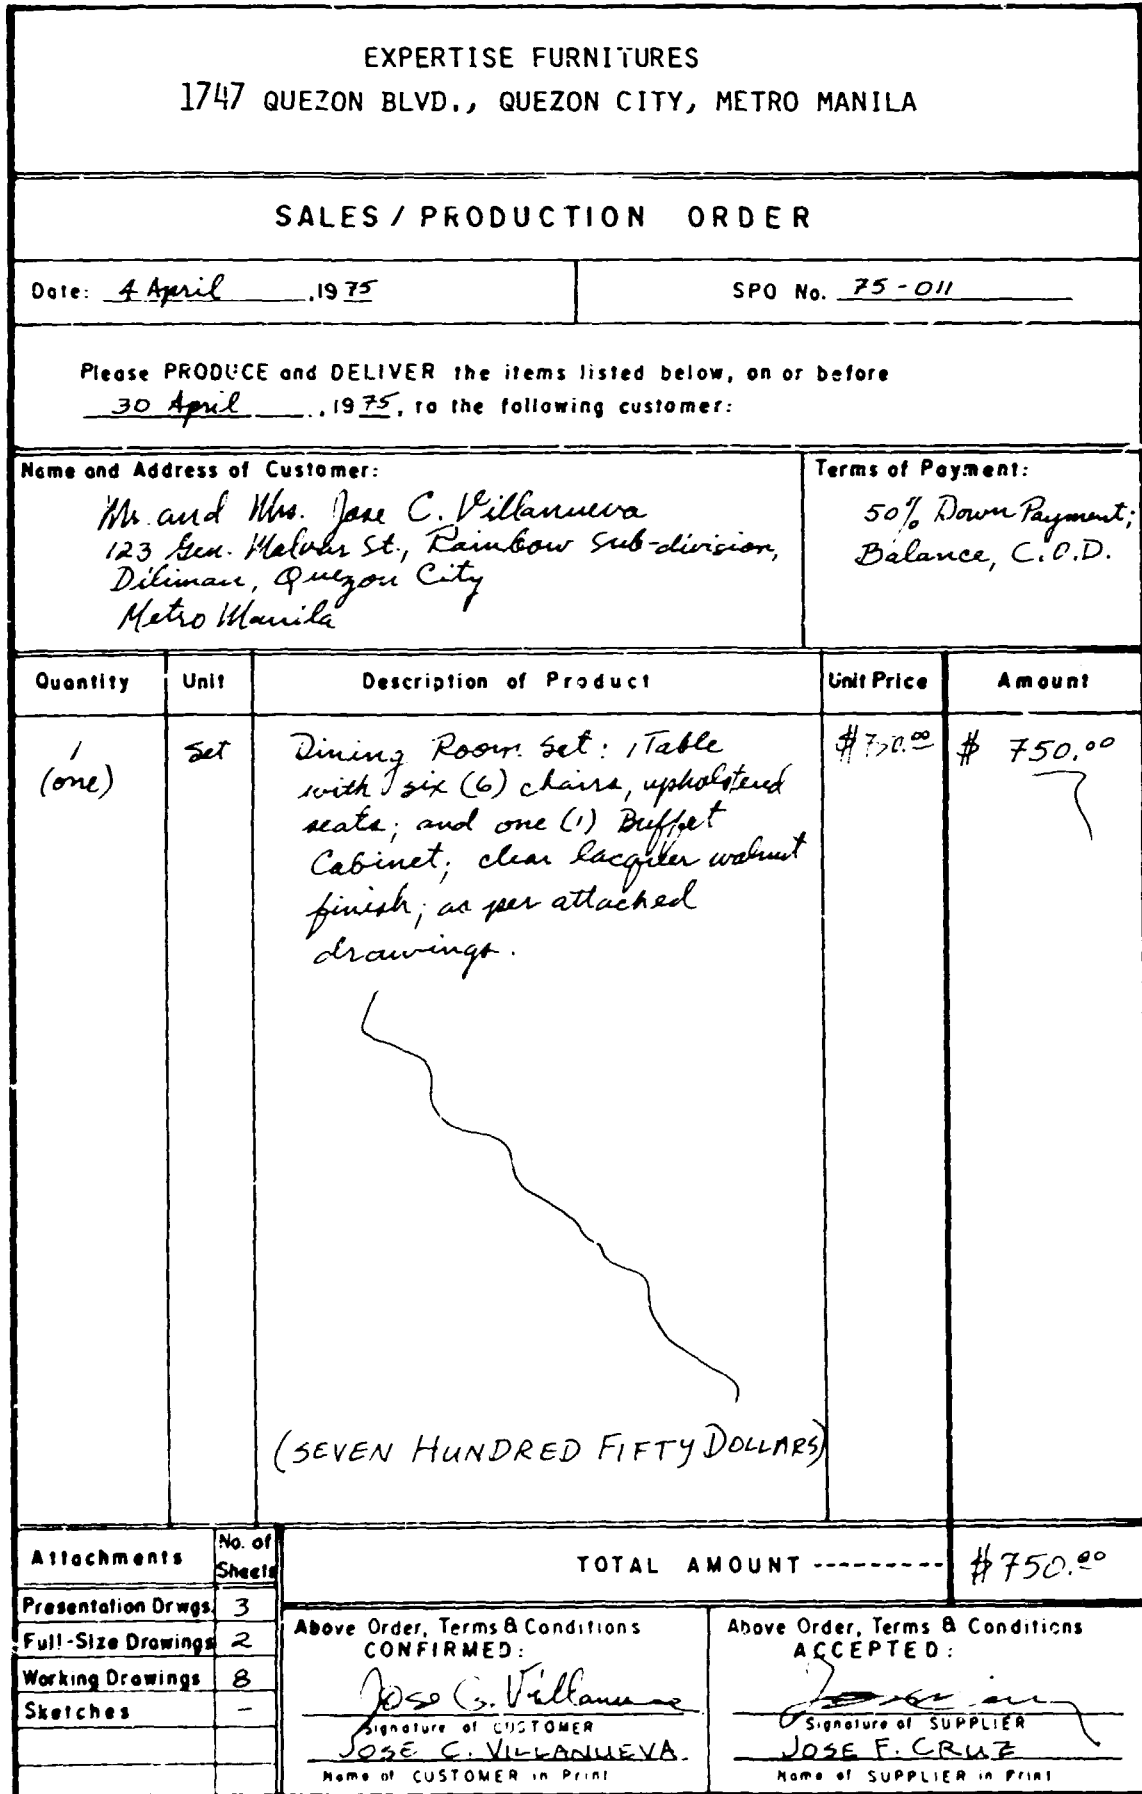 EXPERTISE FURNITURES
1747 QUEZON BLVD., QUEZON CITY, METRO MANILA
SALES / PRODUCTION ORDER
Date: 4 April , 1975
SPO No. 75-011
Please PRODUCE and DELIVER the items listed below, on or before
30 April , 1975, to the following customer:
Name and Address of Customer:
Mr. and Mrs. Jose C. Villanueva
123 Gen. Malvar St., Rainbow Sub-division,
Diliman, Quezon City
Metro Manila
Terms of Payment:
50% Down Payment;
Balance, C.O.D.
Quantity Unit Description of Product Unit Price Amount
1 Set Dining Room Set: 1 Table $750.00 $ 750.00
(one) with six (6) chairs, upholstered
seats; and one (1) Buffet
Cabinet; clear lacquer walnut
finish; as per attached
drawings.
(SEVEN HUNDRED FIFTY DOLLARS)
TOTAL AMOUNT --------- $750.00
Attachments No. of Sheets
Presentation Drwgs. 3
Full-Size Drawings 2
Working Drawings 8
Sketches -
Above Order, Terms & Conditions
CONFIRMED:
Jose C. Villanueva
Signature of CUSTOMER
JOSE C. VILLANUEVA
Name of CUSTOMER in Print
Above Order, Terms & Conditions
ACCEPTED:
Signature of SUPPLIER
JOSE F. CRUZ
Name of SUPPLIER in Print